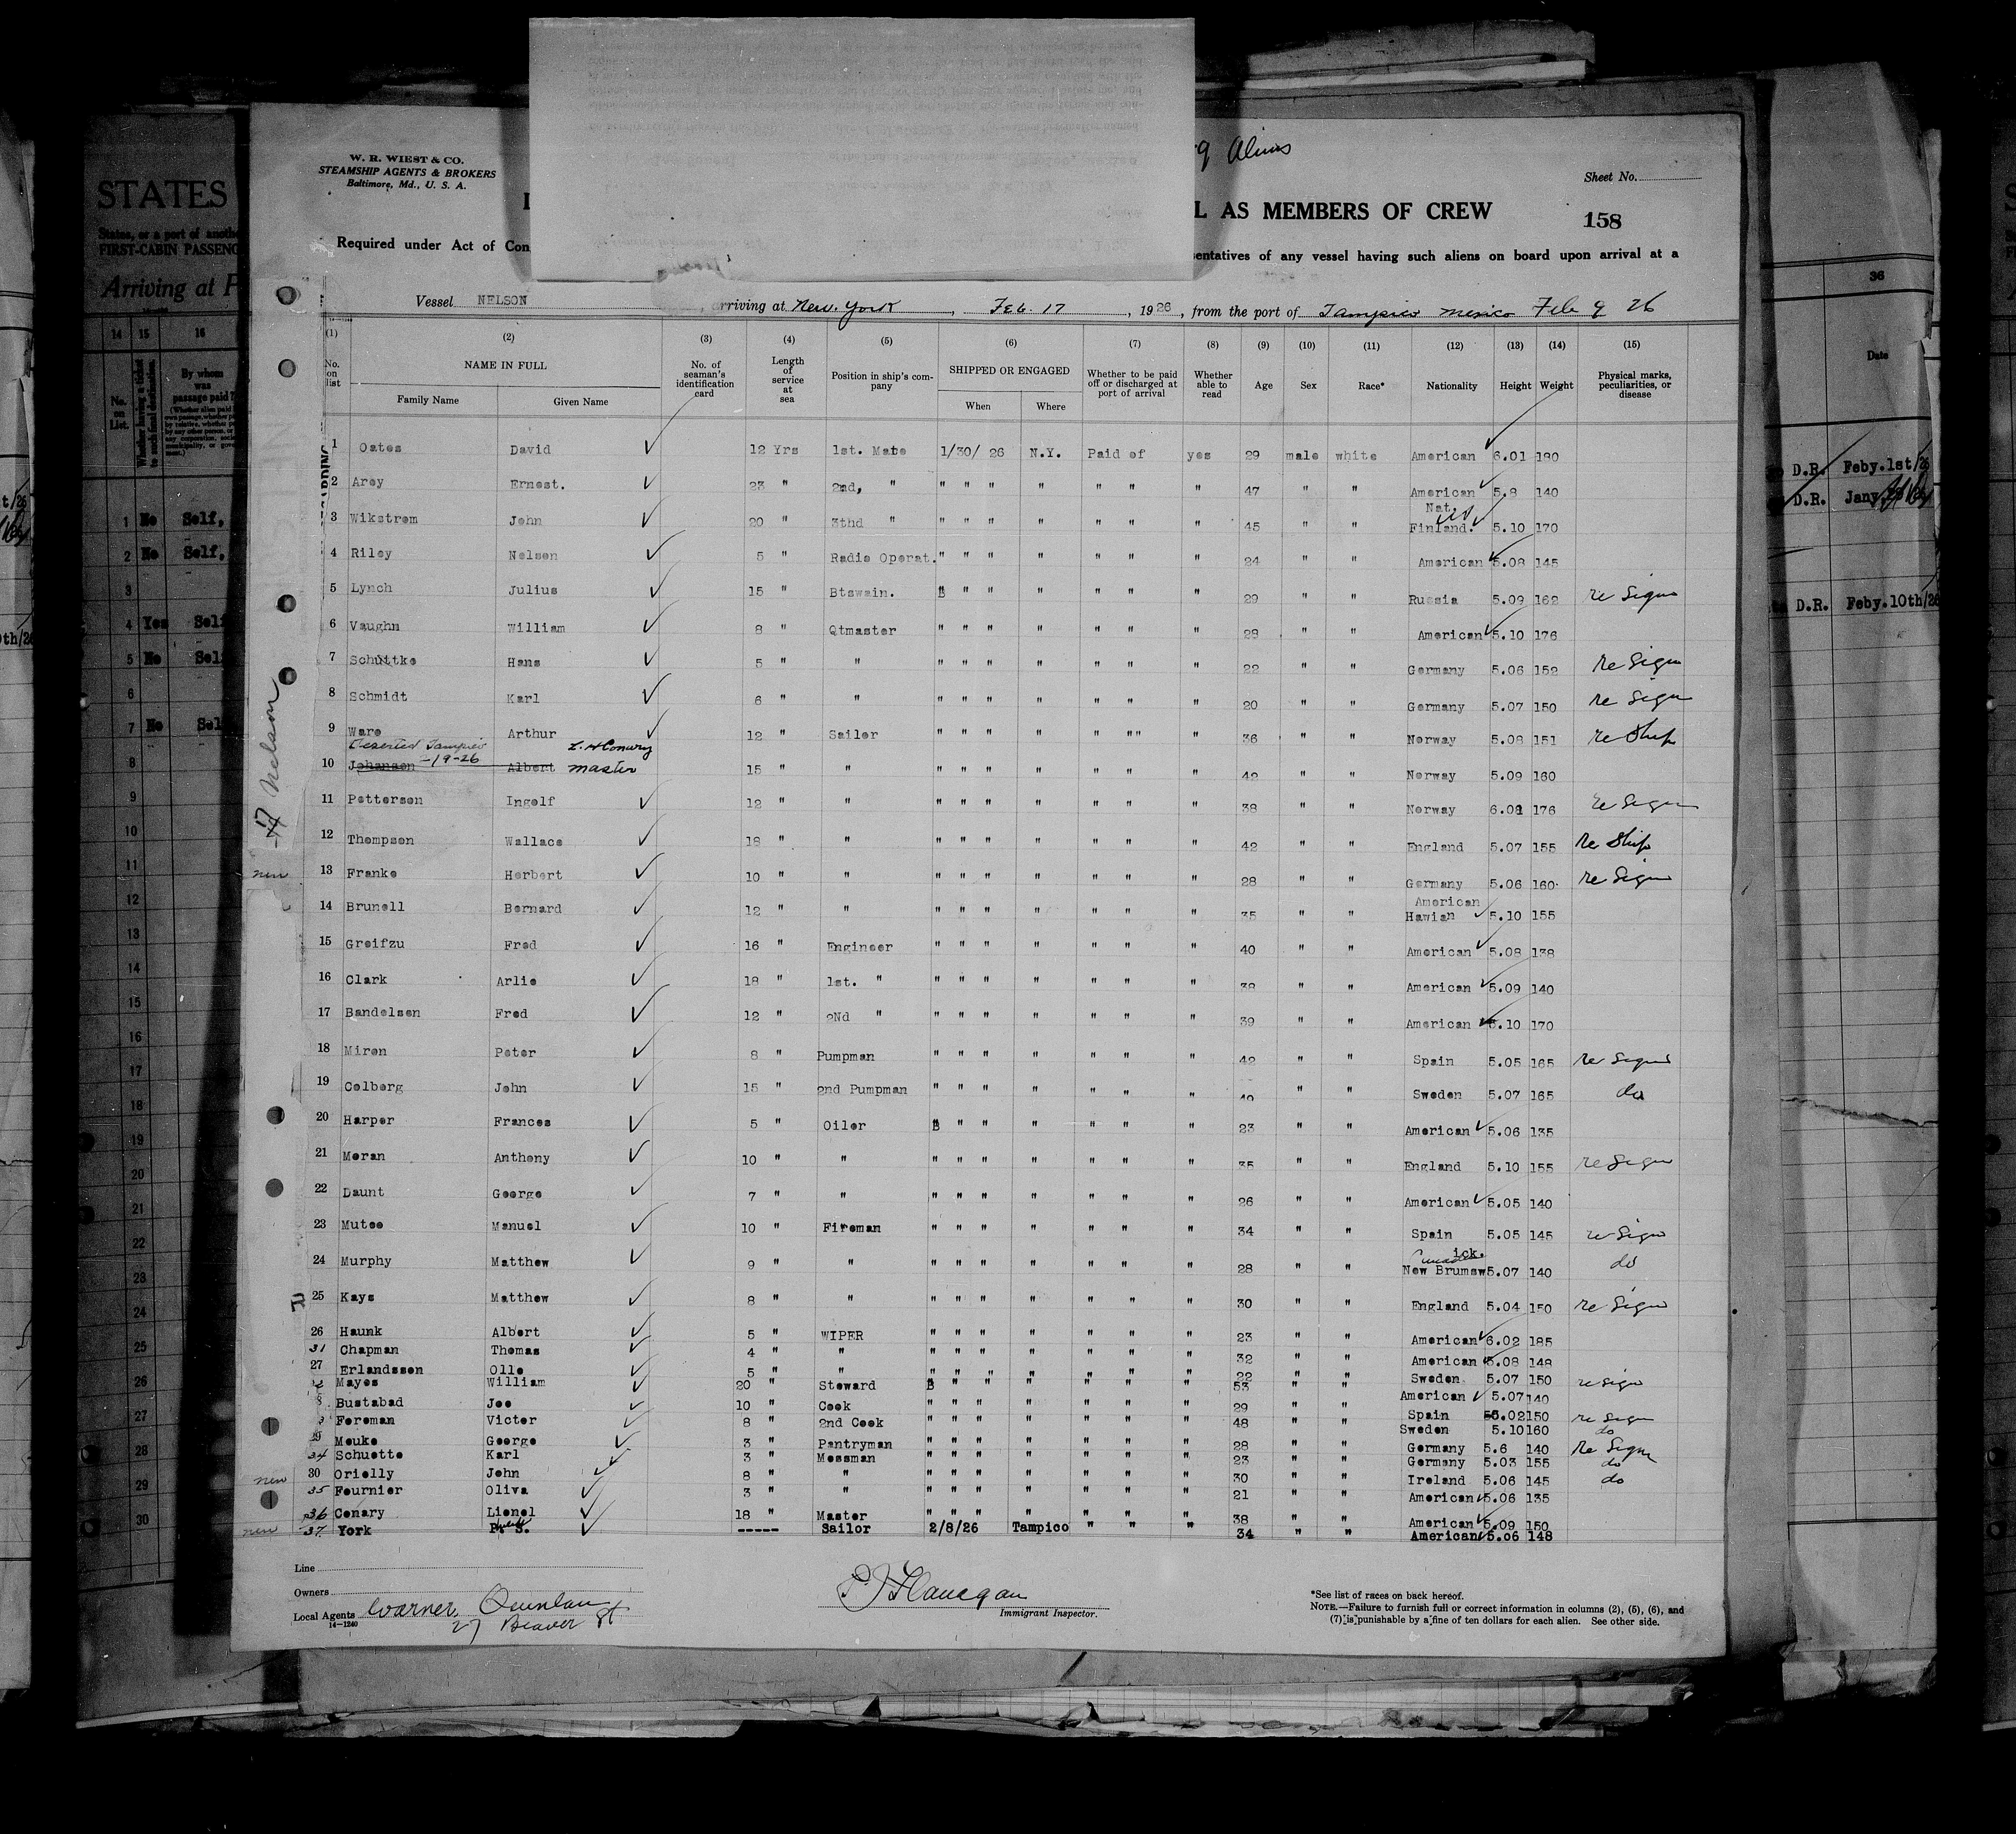 W. R. WIEST & CO.
STEAMSHIP AGENTS & BROKERS
Baltimore, Md., U. S. A.
Aliens
Sheet No.
L AS MEMBERS OF CREW
158
Required under Act of Con
sentatives of any vessel having such aliens on board upon arrival at a
Vessel NELSON , arriving at New York , Feb. 17 , 1926 , from the port of Tampico Mexico Feb 9 26
(1) (2) (3) (4) (5) (6) (7) (8) (9) (10) (11) (12) (13) (14) (15)
No. on list NAME IN FULL No. of seaman's identification card Length of service at sea Position in ship's company SHIPPED OR ENGAGED Whether to be paid off or discharged at port of arrival Whether able to read Age Sex Race* Nationality Height Weight Physical marks, peculiarities, or disease
Family Name Given Name When Where
1 Oates David 12 Yrs 1st. Mate 1/30/ 26 N.Y. Paid of yes 29 male white American 6.01 190
2 Arey Ernest. 23 " 2nd, " " " " " " " " 47 " " American 5.8 140
3 Wikstrom John 20 " 3thd " " " " " " " " 45 " " Nat. Finland. 5.10 170
4 Riley Nelson 5 " Radio Operat. " " " " " " " 24 " " American 5.08 145
5 Lynch Julius 15 " Btswain. " " " " " " 29 " " Russia 5.09 162 re Sign
6 Vaughn William 8 " Qtmaster " " " " " " " 28 " " American 5.10 176
7 Schuttke Hans 5 " " " " " " " " " 22 " " Germany 5.06 152 re Sign
8 Schmidt Karl 6 " " " " " " " " " 20 " " Germany 5.07 150 re Sign
9 Ware Arthur 12 " Sailor " " " " " "" " 36 " " Norway 5.08 151 re Ship
Deserted Tampico -19-26 L. A Conary master
10 Johansen Albert 15 " " " " " " " " " 42 " " Norway 5.09 160
11 Pettersen Ingolf 12 " " " " " " " " " 38 " " Norway 6.02 176 re Sign
12 Thompson Wallace 18 " " " " " " " " " 42 " " England 5.07 155 re Ship
new 13 Franke Herbert 10 " " " " " " " " " 28 " " Germany 5.06 160 re Sign
14 Brunell Bernard 12 " " " " " " " " " 35 " " American Hawian 5.10 155
15 Greifzu Fred 16 " Engineer " " " " " " " 40 " " American 5.08 138
16 Clark Arlie 18 " 1st. " " " " " " " " 38 " " American 5.09 140
17 Bandelsen Fred 12 " 2Nd " " " " " " " " 39 " " American 5.10 170
18 Miron Peter 8 " Pumpman " " " " " " " 42 " " Spain 5.05 165 re Signs
19 Colberg John 15 " 2nd Pumpman " " " " " " " 40 " " Sweden 5.07 165 do
20 Harper Frances 5 " Oiler " " " " " " 23 " " American 5.06 135
21 Moran Anthony 10 " " " " " " " " " 35 " " England 5.10 155 re Sign
22 Daunt George 7 " " " " " " " " " 26 " " American 5.05 140
23 Mutoe Manuel 10 " Fireman " " " " " " " 34 " " Spain 5.05 145 re Sign
24 Murphy Matthew 9 " " " " " " " " " 28 " " Canada New Brunswick. 5.07 140 do
25 Kays Matthew 8 " " " " " " " " " 30 " " England 5.04 150 re Sign
26 Haunk Albert 5 " WIPER " " " " " " " 23 " " American 6.02 185
31 Chapman Thomas 4 " " " " " " " " " 32 " " American 5.08 148
27 Erlandsson Olle 5 " " " " " " " " " 22 " " Sweden 5.07 150 re sign
Mayes William 20 " Steward " " " " " " 53 " " American 5.07 140
Bustabad Joe 10 " Cook " " " " " " " 29 " " Spain 5.02 150 re Sign
Foreman Victor 8 " 2nd Cook " " " " " " " 48 " " Sweden 5.10 160 do
29 Mouke George 3 " Pantryman " " " " " " " 28 " " Germany 5.6 140 re Sign
34 Schuette Karl 3 " Messman " " " " " " " 23 " " Germany 5.03 155 do
new 30 Orielly John 8 " " " " " " " " " 30 " " Ireland 5.06 145 do
35 Fournier Oliva 3 " " " " " " " " " 21 " " American 5.06 135
36 Conary Lionel 18 " Master " " " " " " " 38 " " American 5.09 150
new 37 York S. ----- Sailor 2/8/26 Tampico " " " 34 " " American 5.06 148
Nelson
Line
Owners
Local Agents Warner, Quinlan
27 Beaver St
14—1240
P J Flanegan
Immigrant Inspector.
*See list of races on back hereof.
NOTE.—Failure to furnish full or correct information in columns (2), (5), (6), and
(7) is punishable by a fine of ten dollars for each alien. See other side.
STATES
States, or a port of anoth
FIRST-CABIN PASSENG
Arriving at P
14 15 16
No. on List. By whom was passage paid?
1 No Self,
2 No Self,
3
4 Yes Self
5 No Sel
6
7 No Sel
8
9
10
11
12
13
14
15
16
17
18
19
20
21
22
23
24
25
26
27
28
29
30
36
Date
D.R. Feby.1st/26
D.R. Jany.
D.R. Feby.10th/26